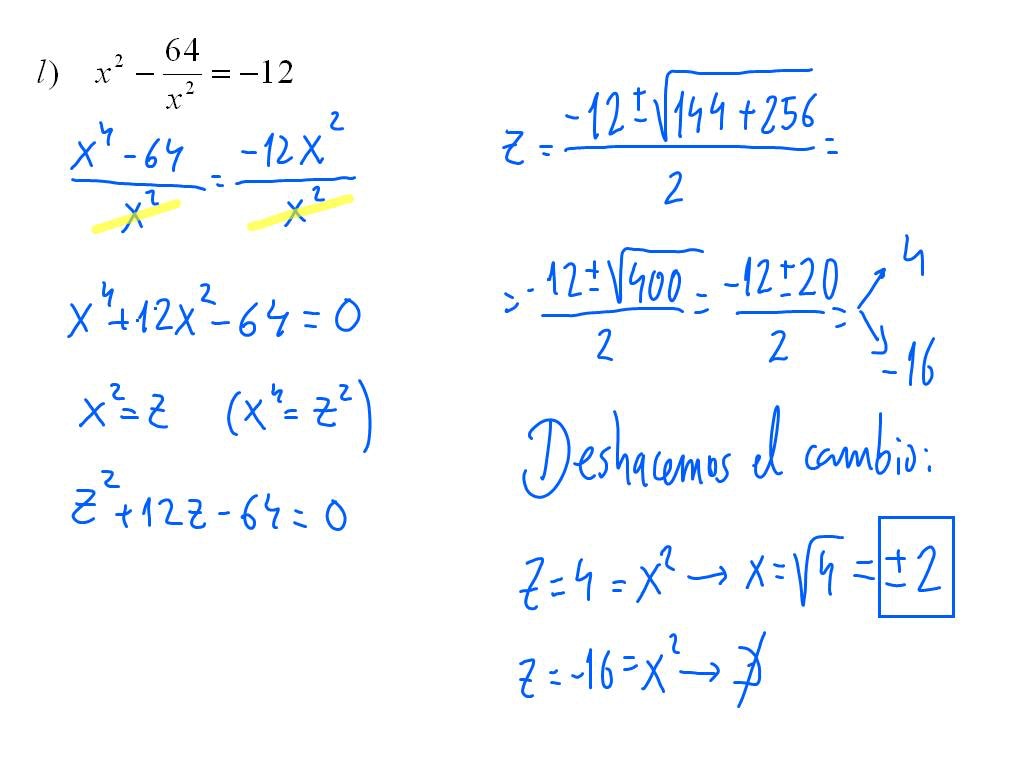 l) x² − 64/x² = −12
(x⁴ − 64)/x² = −12x²/x²
x⁴ + 12x² − 64 = 0
x² = z (x⁴ = z²)
z² + 12z − 64 = 0
z = (−12 ± √(144 + 256))/2 =
= (−12 ± √400)/2 = (−12 ± 20)/2 = ↗ 4
↘ −16
Deshacemos el cambio:
z = 4 = x² → x = √4 = ±2
z = −16 = x² → ∄